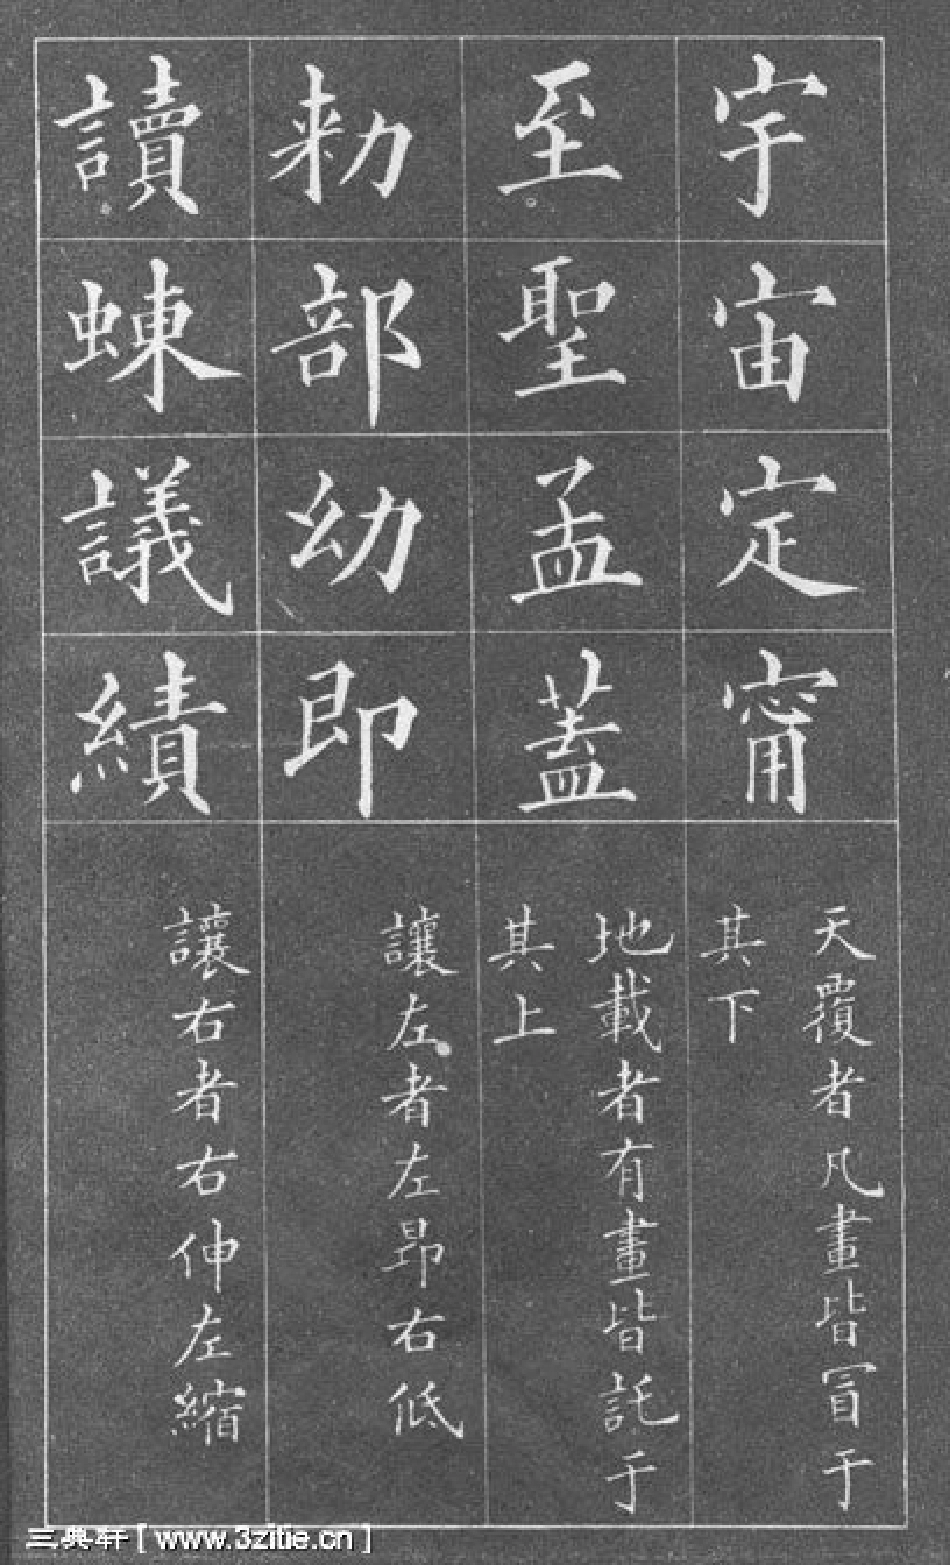 宇宙定甯
天覆者凡畫皆冒于
其下
至聖孟蓋
地載者有畫皆託于
其上
勑部幼即
讓左者左昂右低
讀蝀議績
讓右者右伸左縮
三典轩[www.3zitie.cn]